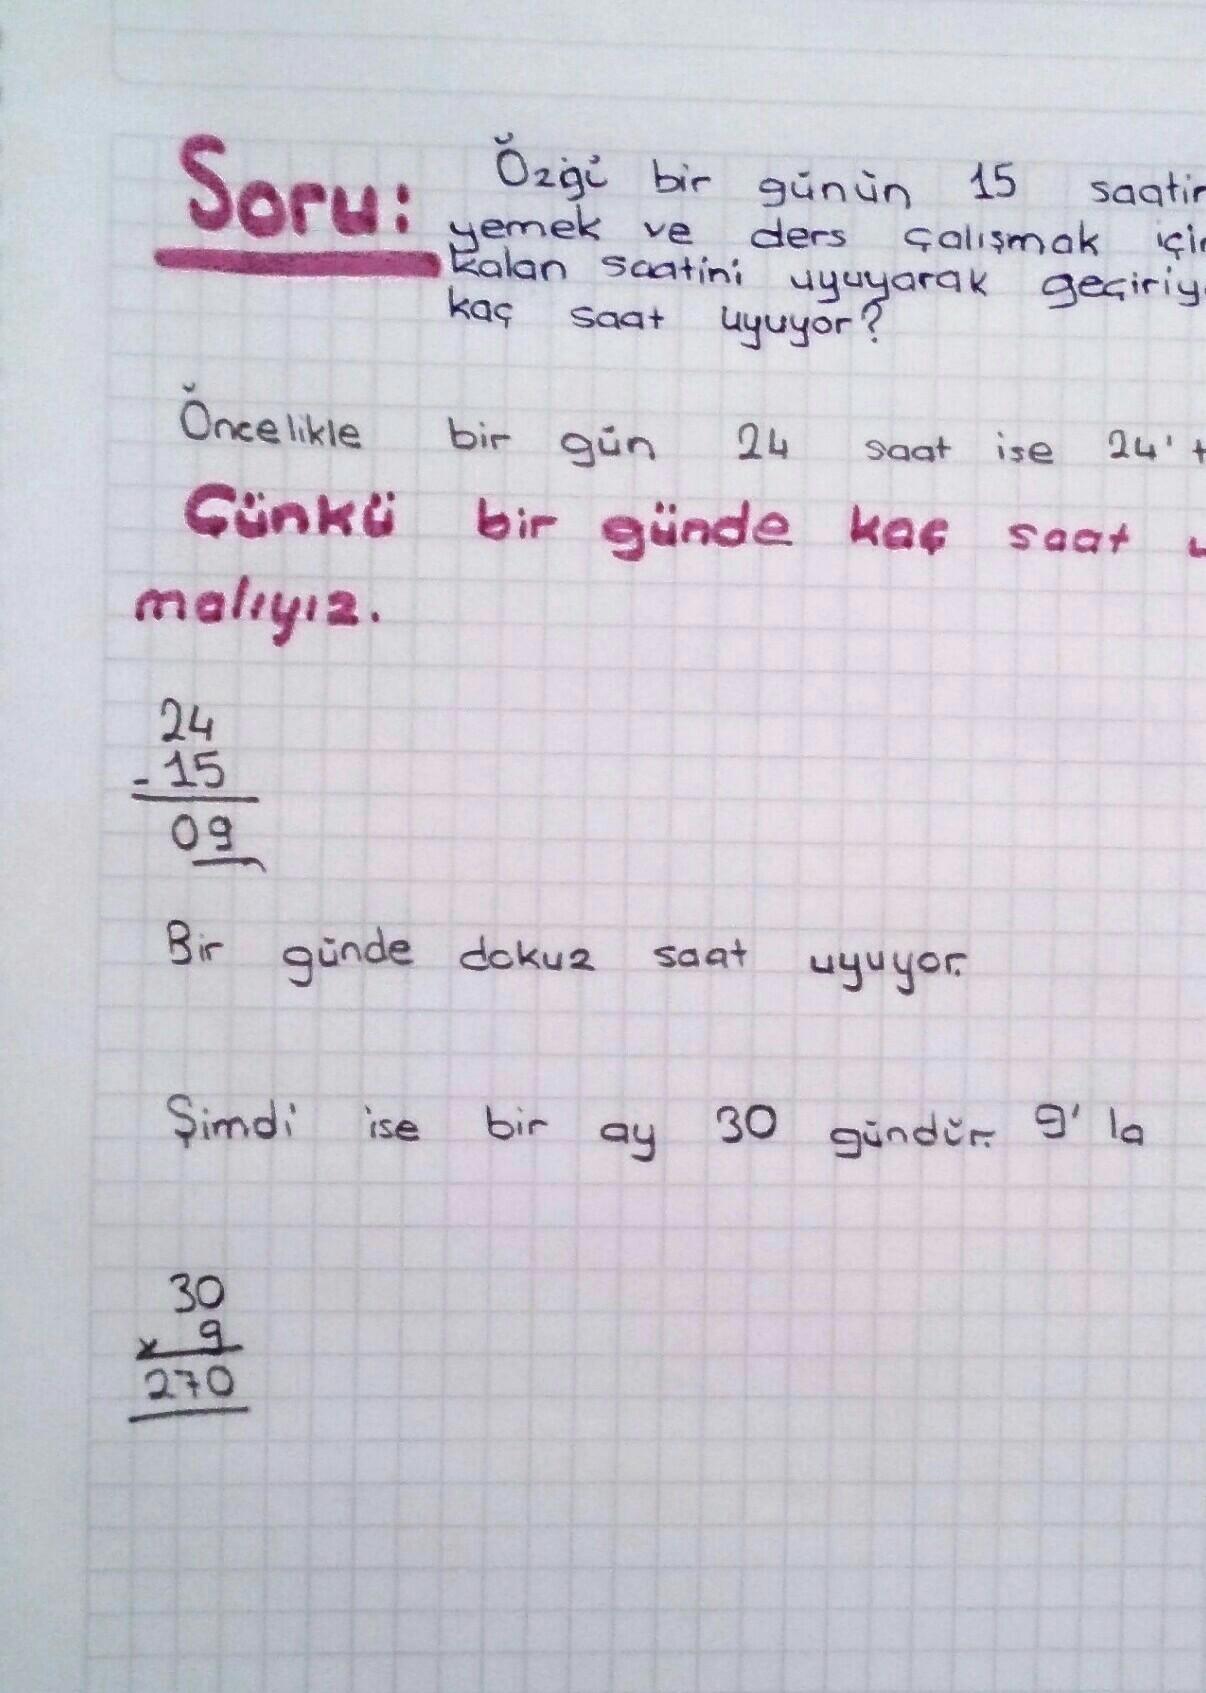 Soru:
Özgü bir günün 15 saatin
yemek ve ders çalışmak için
kalan saatini uyuyarak geçiriy
kaç saat uyuyor?
Öncelikle bir gün 24 saat ise 24' t
Çünkü bir günde kaç saat u
malıyız.
24
- 15
09
Bir günde dokuz saat uyuyor.
Şimdi ise bir ay 30 gündür. 9' la
30
x 9
270